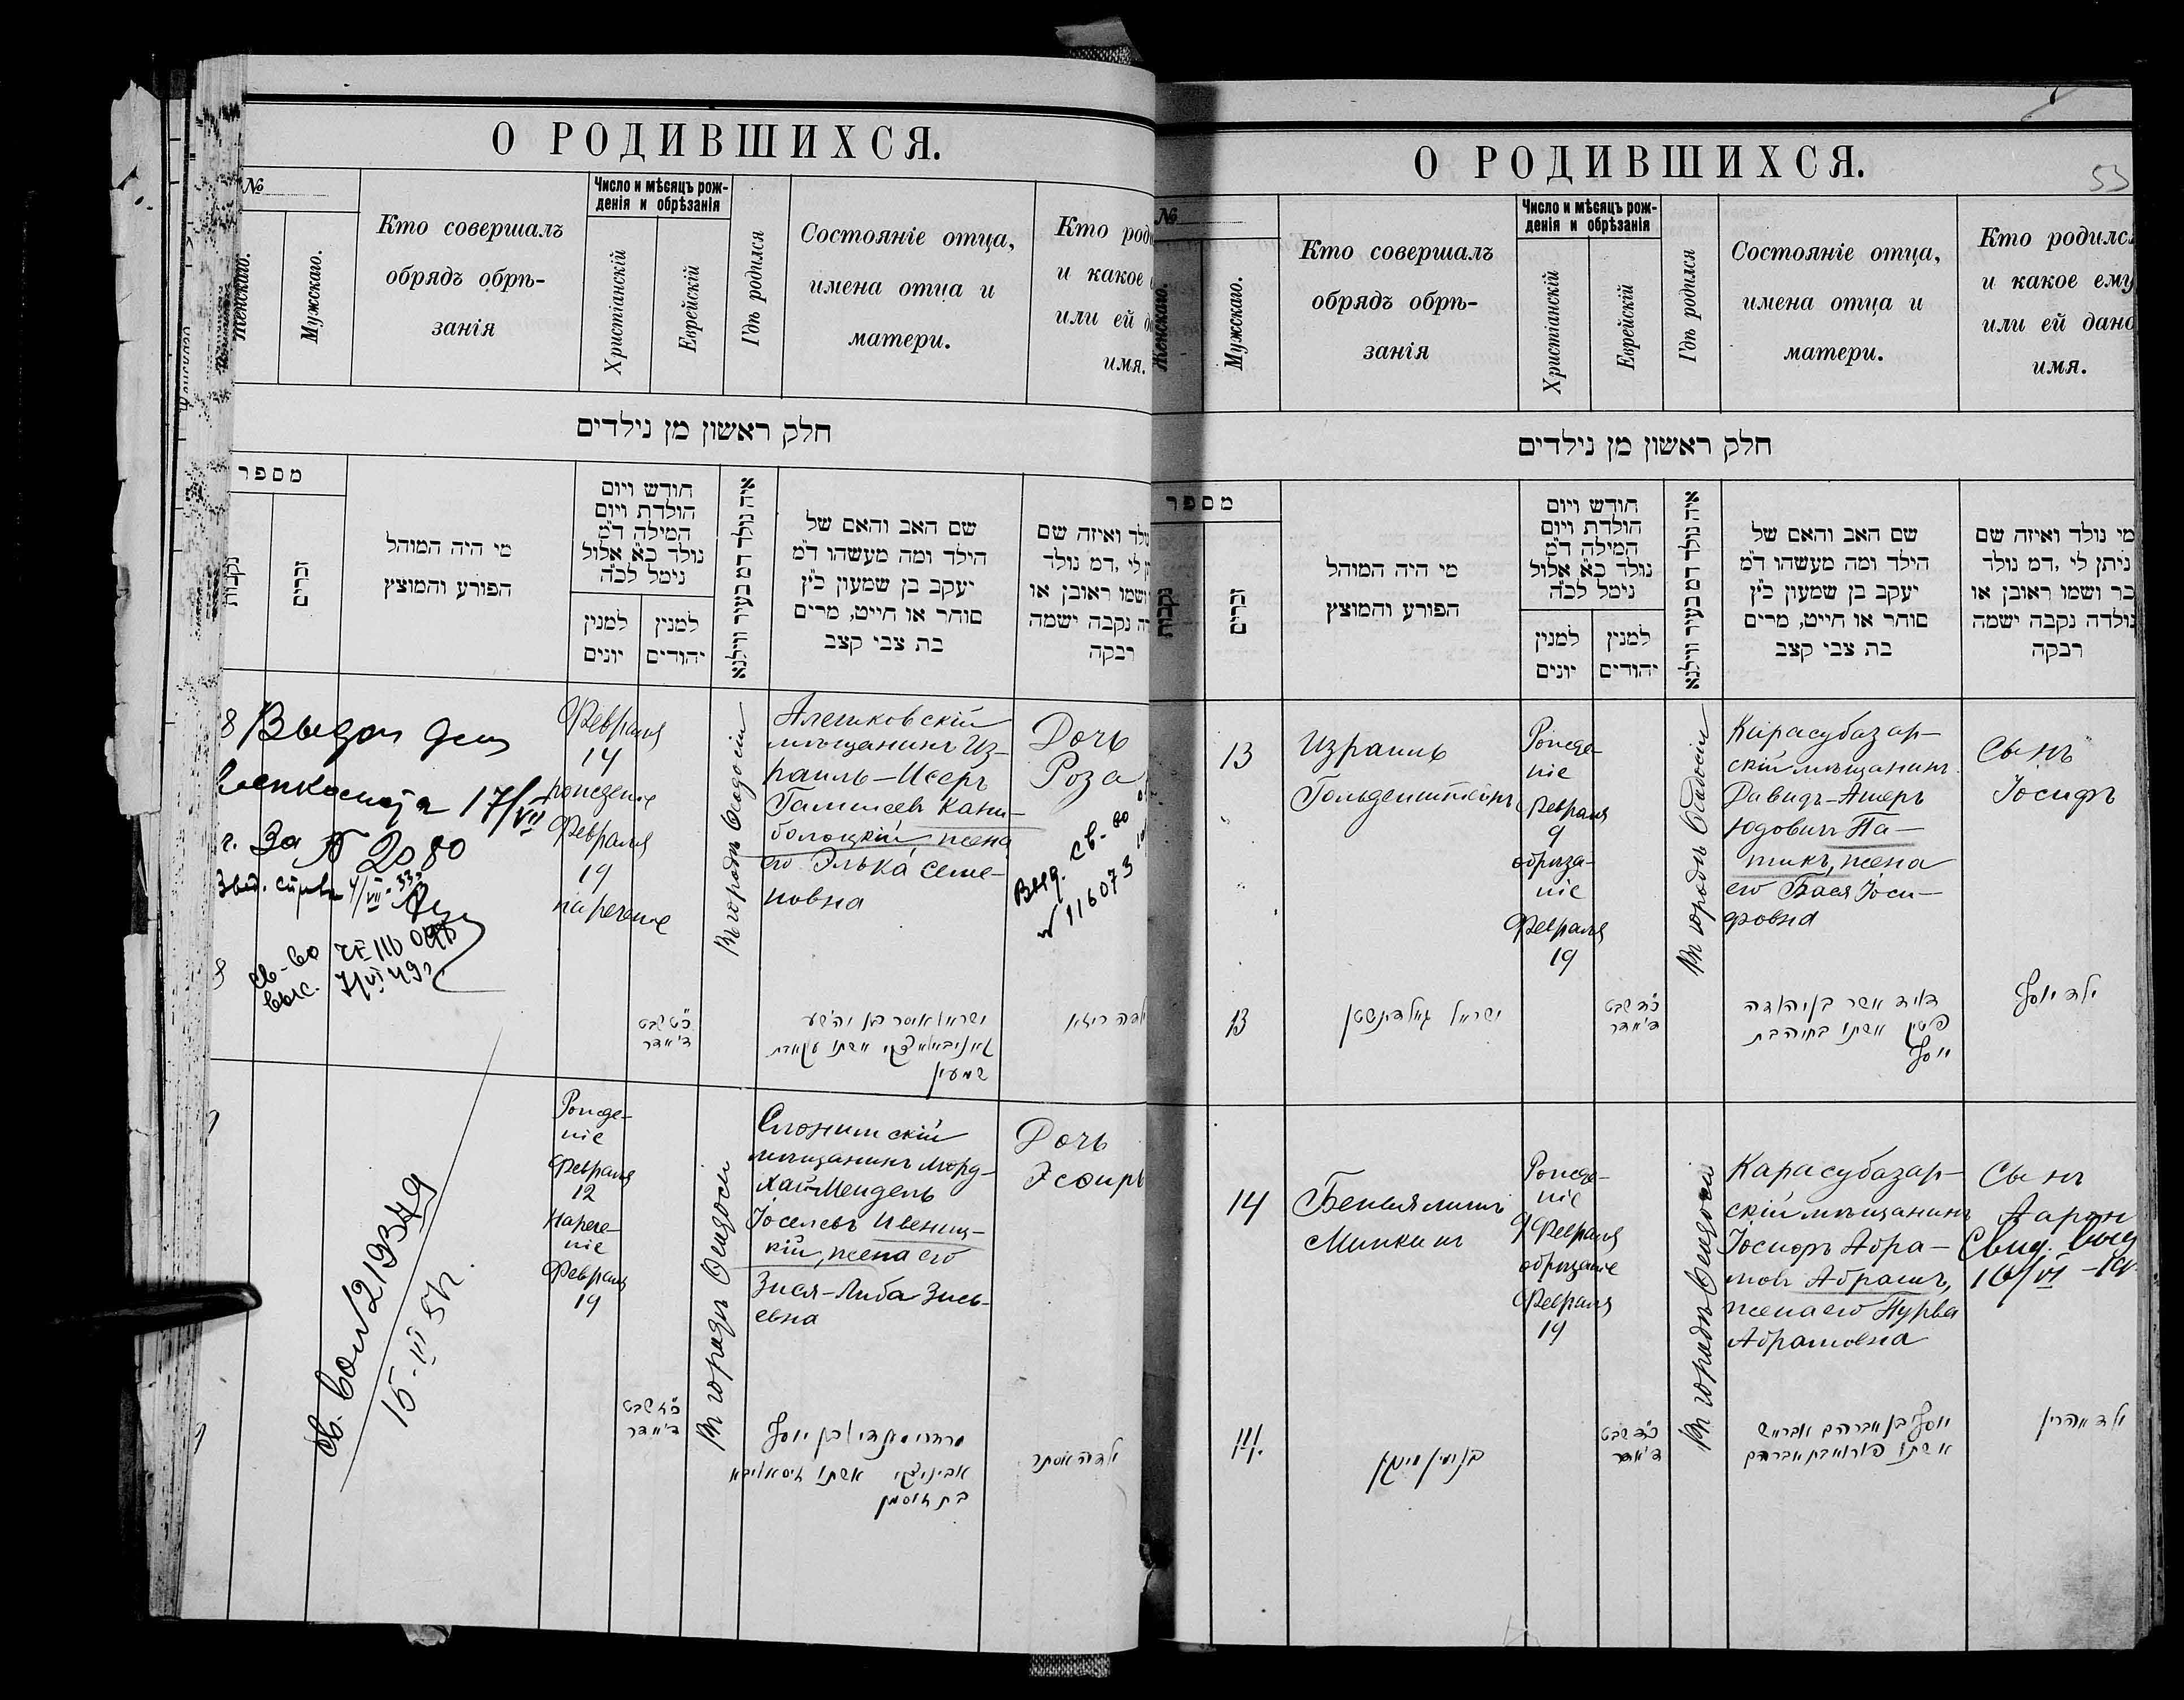 О РОДИВШИХСЯ.
№
Женскаго.
Мужскаго.
Кто совершалъ
обрядъ обрѣ-
занія
Число и мѣсяцъ рож-
денія и обрѣзанія
Христіанскій
Еврейскій
Гдѣ родился
Состояніе отца,
имена отца и
матери.
Кто
и какое
или ей
имя.
חלק ראשון מן נילדים
מספר
נקבות
זכרים
מי היה המוהל
הפורע והמוצץ
חודש ויום
הולדת ויום
המילה ד״מ
נולד כ״א אלול
נימל לכ״ה
למנין
יונים
למנין
יהודים
איה נולד דמ בעיר ווילנא
שם האב והאם של
הילד ומה מעשהו ד״מ
יעקב בן שמעון כ״ץ
סוחר או חייט, מרים
בת צבי קצב
ואיזה שם
לי, דמ נולד
ושמו ראובן או
נקבה ישמה
רבקה
8
17/VII
г. За № 2080
св-во
7/VI 49г.
Февраля
14
рожденіе
Февраля
19
нареченіе
Въ городѣ Ѳеодосіи
Алешковскій
мѣщанинъ Из-
раиль-Исеръ
жена
его Элька Семе-
новна
Дочь
Роза
Выд. св-во
№ 116073
8
כ״ט שבט
ד׳ אדר
שמעון
Рожде-
ніе
Февраля
12
Нарече-
ніе
Февраля
19
Въ городѣ Ѳеодосіи
Слонимскій
мѣщанинъ Морд-
хай-Мендель
Іоселевъ Ивениц-
кій, жена его
Зися-Либа Зись-
евна
Дочь
Эсѳирь
219349
15-III
כ״ז שבט
ד׳ אדר
ילדה אסתר
О РОДИВШИХСЯ.
53
№
Женскаго.
Мужскаго.
Кто совершалъ
обрядъ обрѣ-
занія
Число и мѣсяцъ рож-
денія и обрѣзанія
Христіанскій
Еврейскій
Гдѣ родился
Состояніе отца,
имена отца и
матери.
Кто родился
и какое ему
или ей дано
имя.
חלק ראשון מן נילדים
מספר
נקבות
זכרים
מי היה המוהל
הפורע והמוצץ
חודש ויום
הולדת ויום
המילה ד״מ
נולד כ״א אלול
נימל לכ״ה
למנין
יונים
למנין
יהודים
איה נולד דמ בעיר ווילנא
שם האב והאם של
הילד ומה מעשהו ד״מ
יעקב בן שמעון כ״ץ
סוחר או חייט, מרים
בת צבי קצב
מי נולד ואיזה שם
ניתן לי, דמ נולד
בר ושמו ראובן או
נולדה נקבה ישמה
רבקה
13
Израиль
Гольденштейнъ
Рожде-
ніе
Февраля
9
обрѣза-
ніе
Февраля
19
Въ городѣ Ѳеодосіи
Карасубазар-
скій мѣщанинъ
Давидъ-Ашеръ
Юдовичъ Па-
тикъ, жена
его Бася Іоси-
фовна
Сынъ
Іосифъ
13
ישראל גאלדנשטן
כ״ד שבט
ד׳ אדר
דוד אשר בן יהודה
אשתו
יוסף
ילד יוסף
14
Беньяминъ
Минкинъ
Рожде-
ніе
9 Февраля
обрѣзаніе
Февраля
19
Въ городѣ Ѳеодосіи
Карасубазар-
скій мѣщанинъ
Іосифъ Абра-
мовъ Абрашъ,
жена его Пурва
Абрамовна
Сынъ
Ааронъ
Свид. выд
14.
בנימין מינקין
כ״ד שבט
ד׳ אדר
יוסף בן אברהם אבראש
אשתו פורווא בת אברהם
ילד אהרון